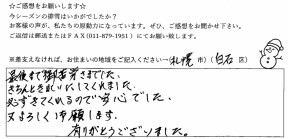 ☆ご感想をお願いします☆
今シーズンの排雪はいかがでしたか?
お客様の声が、私たちの原動力になっています。ぜひ、ご感想をお聞かせ下さい。
ご返信は郵送またはFAX(011-879-1951)にてお願い致します。
※差支えなければ、お住まいの地域をご記入ください→(札幌 市)(白石 区)
最後まで御苦労さまでした。
きちんときれいにしてくれました。
必ずきてくれるので安心でした。
又よろしくお願します。
ありがとうございました。